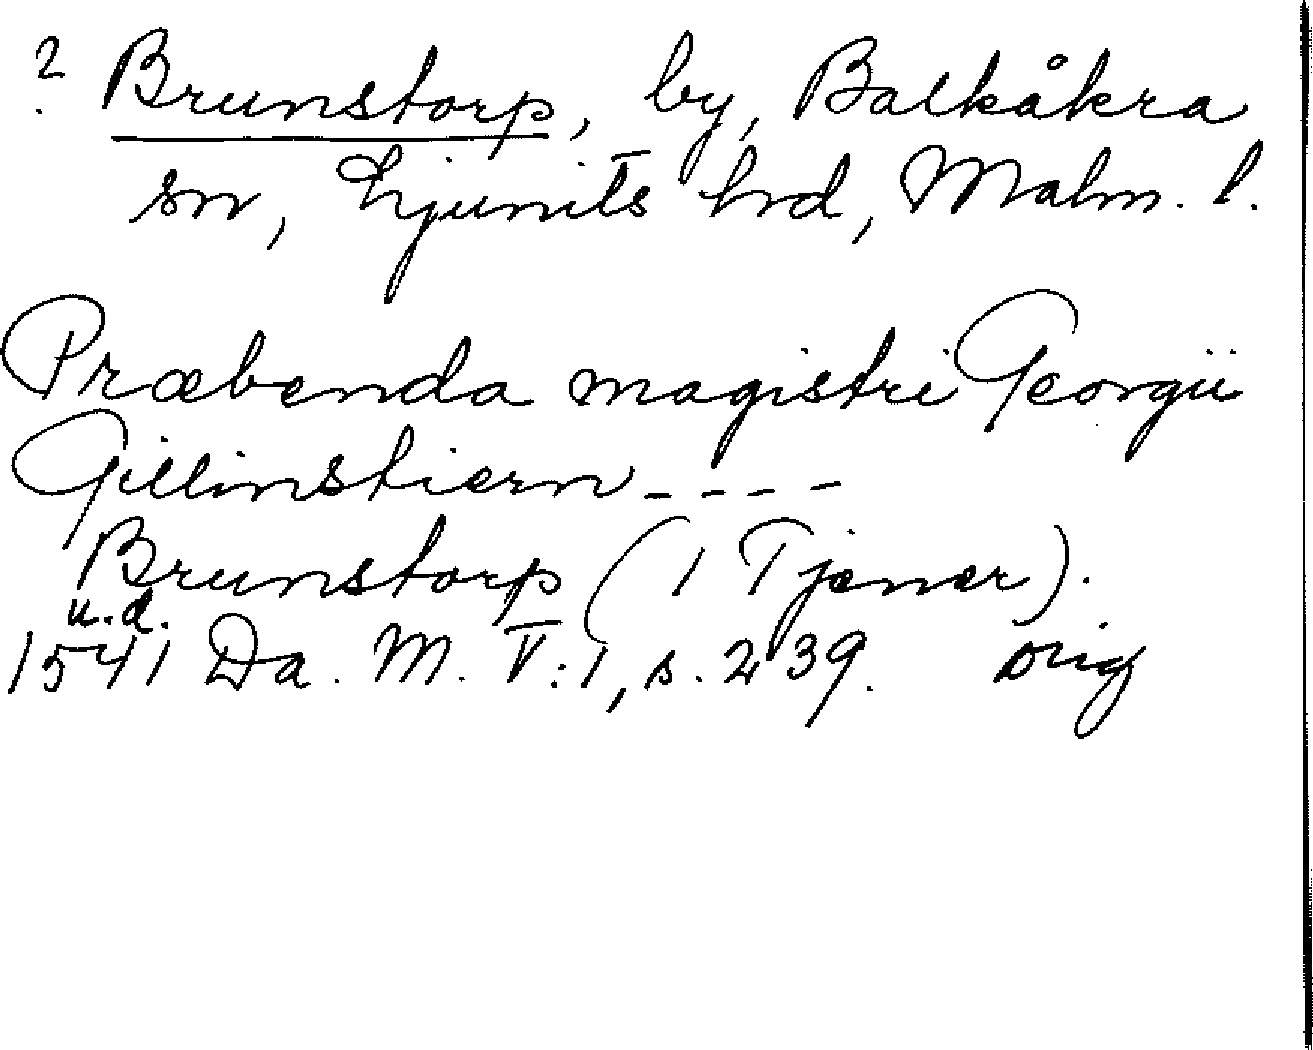 ? Brunstorp, by, Balkåkra
sn, Ljunits hrd, Malm. l.
Præbenda magistri Georgii
Gillinstiern - - - -
Brunstorp (1 Tjener).
u.d.
1541 Da. M. V:1, s. 239. orig